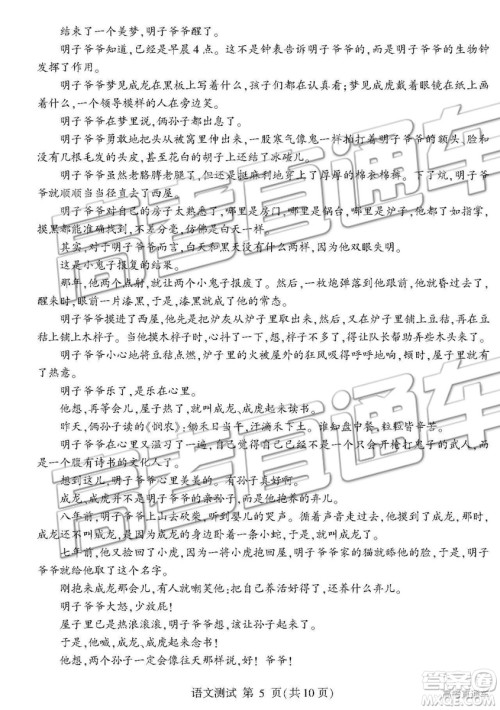 结束了一个美梦，明子爷爷醒了。
明子爷爷知道，已经是早晨 4 点。这不是钟表告诉明子爷爷的，而是明子爷爷的生物钟
发挥了作用。
明子爷爷梦见成龙在黑板上写着什么，孩子们都认真地看着；梦见成虎戴着眼镜在纸上写
着什么，一个领导模样的人在旁边笑。
明子爷爷在梦里说，俩孙子都出息了。
明子爷爷勇敢地把热气从被窝里停出来，一股寒气像鬼一样拍打着明子爷爷的额头、脸和
没有几根毛发的头皮，甚至花白的胡子上还结了冰碴儿。
明子爷爷虽然老胳膊老腿了，但还是挺麻利地穿上了厚厚的棉衣棉裤。下了炕，明子爷爷
就顺顺当当径直去了西屋。
明子爷爷对自己的房子太熟悉了，哪里是房门，哪里是锅台，哪里是炉子，他都了如指掌，
摸黑都能如履平地，不差分毫，仿佛是白天一样。
其实，对于明子爷爷而言，白天和黑天没有什么两样，因为他双眼失明。
这是小鬼子报复的结果。
那年，他的两个点射，就让两个小鬼子飞了天。然后，一枚炮弹落到他眼前，他就倒下了。
醒来时，眼前一片漆黑，于是，漆黑就成了他的常态。
明子爷爷摸进了西屋。他先是把炉灰从炉子里掏出来，然后往炉子里铺上豆秸，在豆秸上
铺上木柈子。当他摸木柈子时，心中一种幸福感油然而生，得让队长帮弄些柴火了。
明子爷爷小心地将豆秸点燃，炉子里的火被屋外的狂风吸得呼呼地响，顷刻间，屋子里就
有了热意。
明子爷爷乐了，是乐在心里。
他想，再等会儿，屋子热了，就叫成龙、成虎起来读书。
昨天，俩孙子读的《悯农》：锄禾日当午，汗滴禾下土。谁知盘中餐，粒粒皆辛苦。
明子爷爷在心里又温习了一遍。有文化真好啊！他可不想只会开枪打鬼子的武人，而
是一个腹有诗书的文化人了。
想到这儿，明子爷爷心里美美的。有孙子真好啊。
成龙、成虎并不是明子爷爷的亲孙子，而是他抱养的弃儿。
八年前，明子爷爷上山去砍柴，听到婴儿的哭声。循着声音走过去，他摸到了成龙。当时，
成龙还不如现在的小猫大，像一条小蛇，于是，就给他取名成龙了。
七年前，他又捡到了小虎，说是小虎，其实还没有小猫大，明子爷爷家的猫就活活饿死了，明子爷爷
就给他取了这个名字。
刚抱来成龙那会儿，有人就嘲笑他：自己还养活不了，还养什么弃儿。
明子爷爷大怒，少放屁！
屋里已经是热浪滚滚，明子爷爷想，该让孙子起来了。
于是，他喊，成龙、成虎起来念书！
他想，两个孙子一定会像往天那样说：好！爷爷！
语文测试 第 5 页(共 10 页)
高考直通车